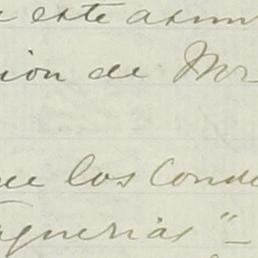 este asun
ion de Mr
ue los Conde
querias"-